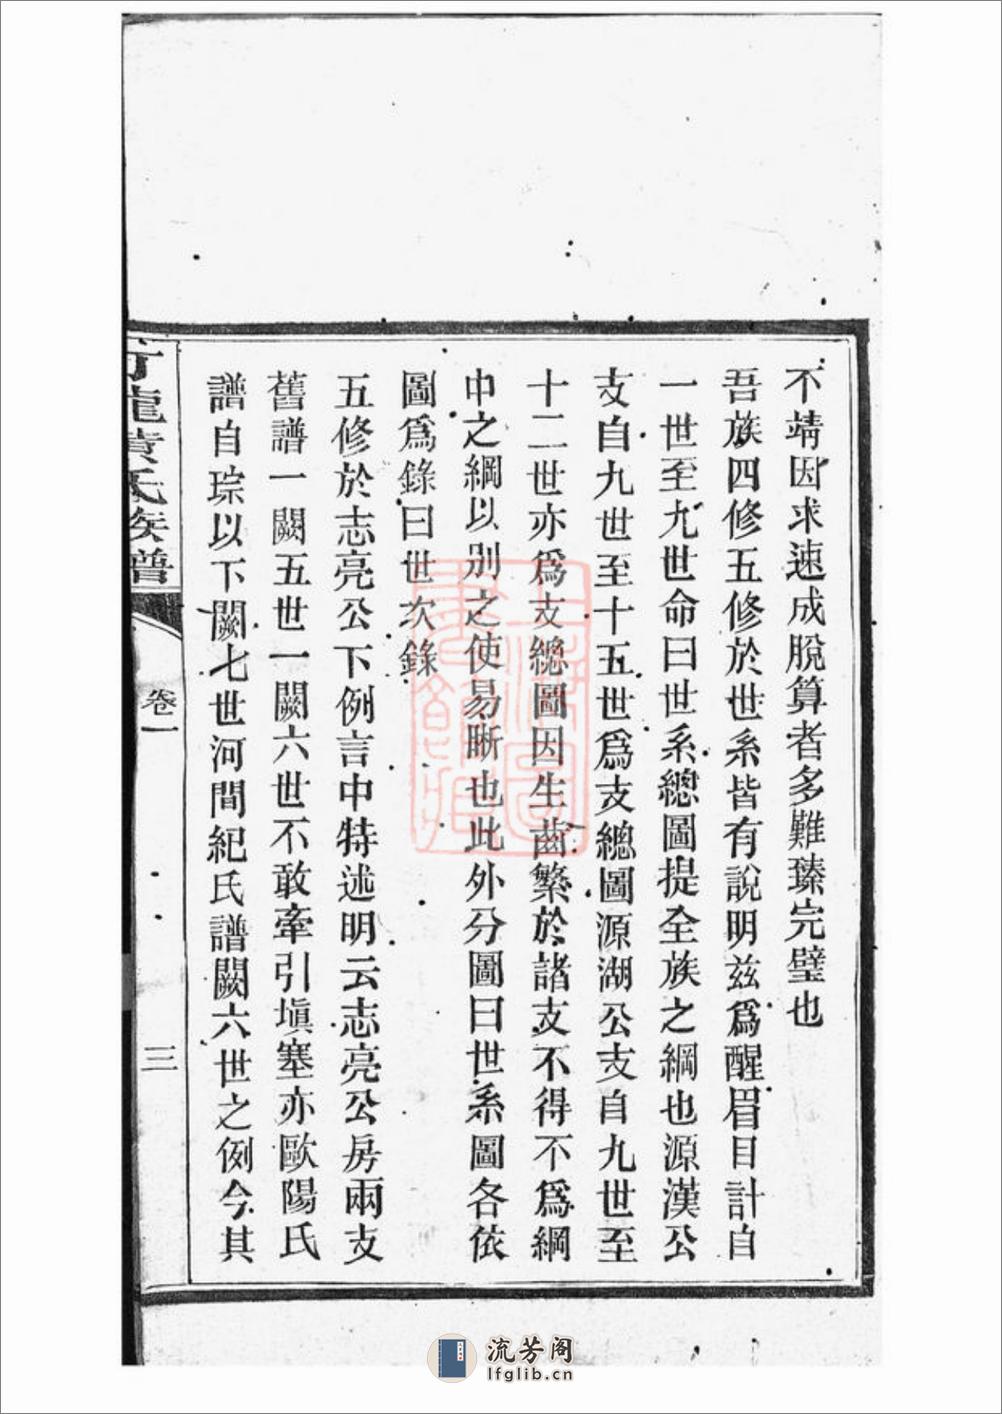 不靖因求速成脫算者多難臻完璧也
吾族四修五修於世系皆有說明茲爲醒眉目計自
一世至九世命曰世系總圖提全族之綱也源漢公
支自九世至十五世爲支總圖源湖公支自九世至
十二世亦爲支總圖因生齒繁於諸支不得不爲綱
中之綱以別之使易晰也此外分圖曰世系圖各依
圖爲錄曰世次錄
五修於志亮公下例言中特述明云志亮公房兩支
舊譜一闕五世一闕六世不敢牽引塡塞亦歐陽氏
譜自琮以下闕七世河間紀氏譜闕六世之例今其
龍黄氏族譜
卷一
三
流芳阁
lfglib.cn